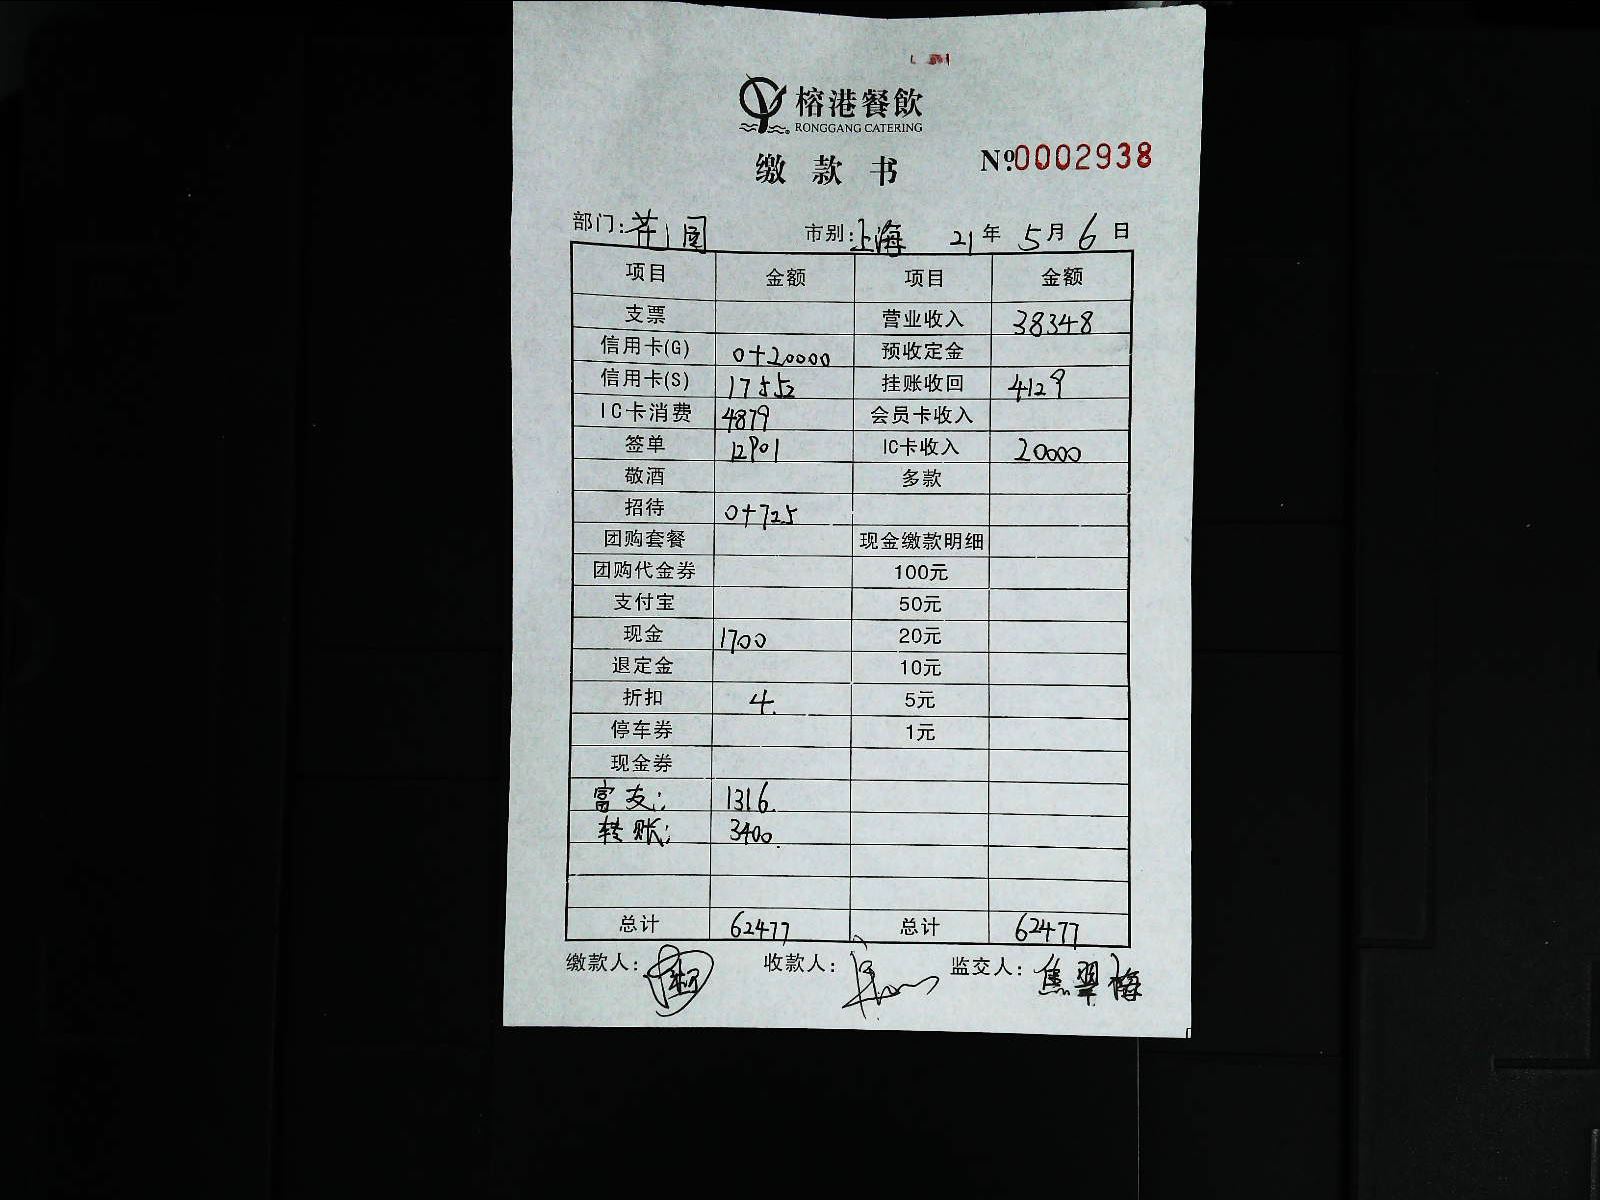 榕港餐飲
RONGGANG CATERING
缴款书
Nº0002938
部门: 市别:上海 21年5月6日
项目 金额 项目 金额
支票 营业收入 38348
信用卡(G) 0+20000 预收定金
信用卡(S) 17552 挂账收回 4129
IC卡消费 4879 会员卡收入
签单 12901 IC卡收入 20000
敬酒 多款
招待 0+725
团购套餐 现金缴款明细
团购代金券 100元
支付宝 50元
现金 1700 20元
退定金 10元
折扣 4. 5元
停车券 1元
现金券
富友: 1316.
转账: 3400.
总计 62477 总计 62477
缴款人: 收款人: 监交人:焦翠梅